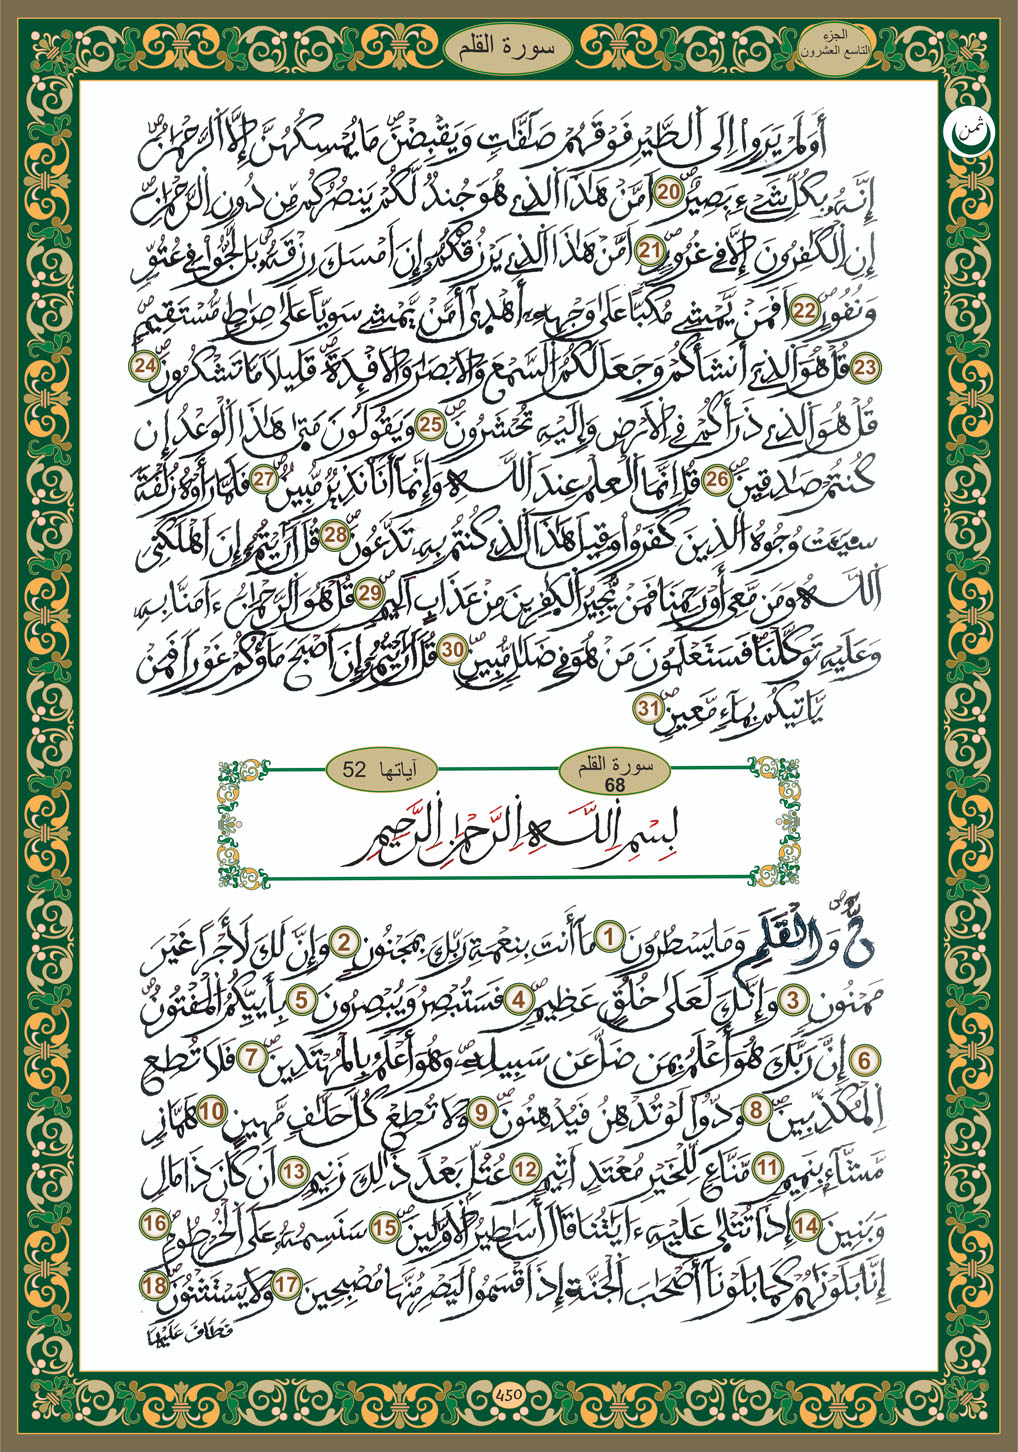 سورة القلم
الجزء
التاسع العشرون
ثمن
أَوَلَمْ يَرَوِاْ اِلَى اَلطَّيْرِ فَوْقَهُمْ صَٰٓفَّٰتٍ وَيَقْبِضْنَۖ مَا يُمْسِكُهُنَّ إِلَّا اَلرَّحْمَٰنُۖ
إِنَّهُۥ بِكُلِّ شَےْءِۢ بَصِيرٌۖ 20 اَمَّنْ هَٰذَا اَلذِے هُوَ جُندٞ لَّكُمْ يَنصُرُكُم مِّن دُونِ اِلرَّحْمَٰنِۖ
إِنِ اِلْكَٰفِرُونَ إِلَّا فِے غُرُورٍۖ 21 اَمَّنْ هَٰذَا اَلذِے يَرْزُقُكُمُۥٓ إِنَ اَمْسَكَ رِزْقَهُۥۖ بَل لَّجُّواْ فِے عُتُوّٖ
وَنُفُورٍۖ 22 اَفَمَنْ يَّمْشِے مُكِبّاً عَلَىٰ وَجْهِهِۦٓ أَهْد۪ىٰٓ أَمَّنْ يَّمْشِے سَوِيّاً عَلَىٰ صِرَٰطٖ مُّسْتَقِيمٖۖ
23 قُلْ هُوَ اَلذِےٓ أَنشَأَكُمْ وَجَعَلَ لَكُمُ اُلسَّمْعَ وَالَابْصَٰرَ وَالَافْـِٕدَةَۖ قَلِيلاٗ مَّا تَشْكُرُونَۖ 24
قُلْ هُوَ اَلذِے ذَرَأَكُمْ فِے اِلَارْضِ وَإِلَيْهِ تُحْشَرُونَۖ 25 وَيَقُولُونَ مَت۪ىٰ هَٰذَا اَلْوَعْدُ إِن
كُنتُمْ صَٰدِقِينَۖ 26 قُلِ اِنَّمَا اَلْعِلْمُ عِندَ اَللَّهِ وَإِنَّمَآ أَنَا نَذِيرٞ مُّبِينٞۖ 27 فَلَمَّا رَأَوْهُ زُلْفَةٗ
سِيٓـَٔتْ وُجُوهُ اُلذِينَ كَفَرُواْ وَقِيلَ هَٰذَا اَلذِے كُنتُم بِهِۦ تَدَّعُونَۖ 28 قُلَ اَرَٰٓيْتُمُۥٓ إِنَ اَهْلَكَنِيَ
اَللَّهُ وَمَن مَّعِيَ أَوْ رَحِمَنَا فَمَنْ يُّجِيرُ اُلْكٰ۪فِرِينَ مِنْ عَذَابٍ اَلِيمٖۖ 29 قُلْ هُوَ اَلرَّحْمَٰنُ ءَامَنَّا بِهِۦ
وَعَلَيْهِ تَوَكَّلْنَاۖ فَسَتَعْلَمُونَ مَنْ هُوَ فِے ضَلَٰلٖ مُّبِينٖۖ 30 قُلَ اَرَٰٓيْتُمُۥٓ إِنَ اَصْبَحَ مَآؤُكُمْ غَوْراٗ فَمَنْ
يَّاتِيكُم بِمَآءٖ مَّعِينٖۖ 31
سورة القلم 68
آياتها 52
بِسْمِ اِللَّهِ اِلرَّحْمَٰنِ اِلرَّحِيمِ
نٓۖ وَالْقَلَمِ وَمَا يَسْطُرُونَ 1 مَآ أَنتَ بِنِعْمَةِ رَبِّكَ بِمَجْنُونٖ 2 وَإِنَّ لَكَ لَأَجْراً غَيْرَ
مَمْنُونٖ 3 وَإِنَّكَ لَعَلَىٰ خُلُقٍ عَظِيمٖ 4 فَسَتُبْصِرُ وَيُبْصِرُونَ 5 بِأَييِّكُمُ اُلْمَفْتُونُۖ
6 إِنَّ رَبَّكَ هُوَ أَعْلَمُ بِمَن ضَلَّ عَن سَبِيلِهِۦۖ وَهُوَ أَعْلَمُ بِالْمُهْتَدِينَۖ 7 فَلَا تُطِعِ
اِلْمُكَذِّبِينَۖ 8 وَدُّواْ لَوْ تُدْهِنُ فَيُدْهِنُونَۖ 9 وَلَا تُطِعْ كُلَّ حَلَّافٖ مَّهِينٍ 10 هَمَّازٖ
مَّشَّآءِۢ بِنَمِيمٖ 11 مَّنَّاعٖ لِّلْخَيْرِ مُعْتَدٍ اَثِيمٍ 12 عُتُلِّۢ بَعْدَ ذَٰلِكَ زَنِيمٍ 13 اَن كَانَ ذَا مَالٖ
وَبَنِينَۖ 14 إِذَا تُتْل۪ىٰ عَلَيْهِ ءَايَٰتُنَا قَالَ أَسَٰطِيرُ اُلَاوَّلِينَۖ 15 سَنَسِمُهُۥ عَلَى اَلْخُرْطُومِۖ 16
إِنَّا بَلَوْنَٰهُمْ كَمَا بَلَوْنَآ أَصْحَٰبَ اَلْجَنَّةِ إِذَ اَقْسَمُواْ لَيَصْرِمُنَّهَا مُصْبِحِينَ 17 وَلَا يَسْتَثْنُونَۖ 18
فَطَافَ عَلَيْهَا
450